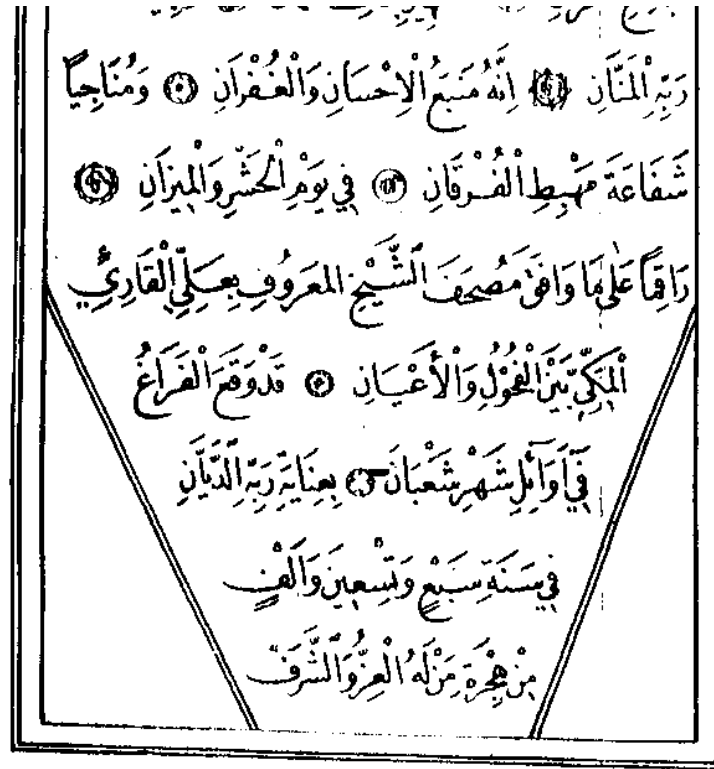 رَبِّهِ الْمَنَّانِ اِنَّهُ مَنْبَعُ الْاِحْسَانِ وَالْغُفْرَانِ وَمُنَاجِياً
شَفَاعَةَ مَهْبِطِ الْفُرْقَانِ فِي يَوْمِ الْحَشْرِ وَالْمِيزَانِ
رَاقِماً عَلٰى مَا وَافَقَ مَصْحَفَ الشَّيْخِ المَعْرُوفِ بِعَلِيِّ الْقَارِئِ
الْمَكِّيِّ بَيْنَ الْفُحُوْلِ وَالْأَعْيَانِ قَدْ وَقَعَ الْفَرَاغُ
فِي اَوَائِلِ شَهْرِ شَعْبَانَ بِعِنَايَةِ رَبِّهِ الدَّيَّانِ
فِي سَنَةِ سَبْعٍ وَتِسْعِينَ وَاَلْفٍ
مِنْ هِجْرَةِ مَنْ لَهُ الْعِزُّ وَالشَّرَفُ